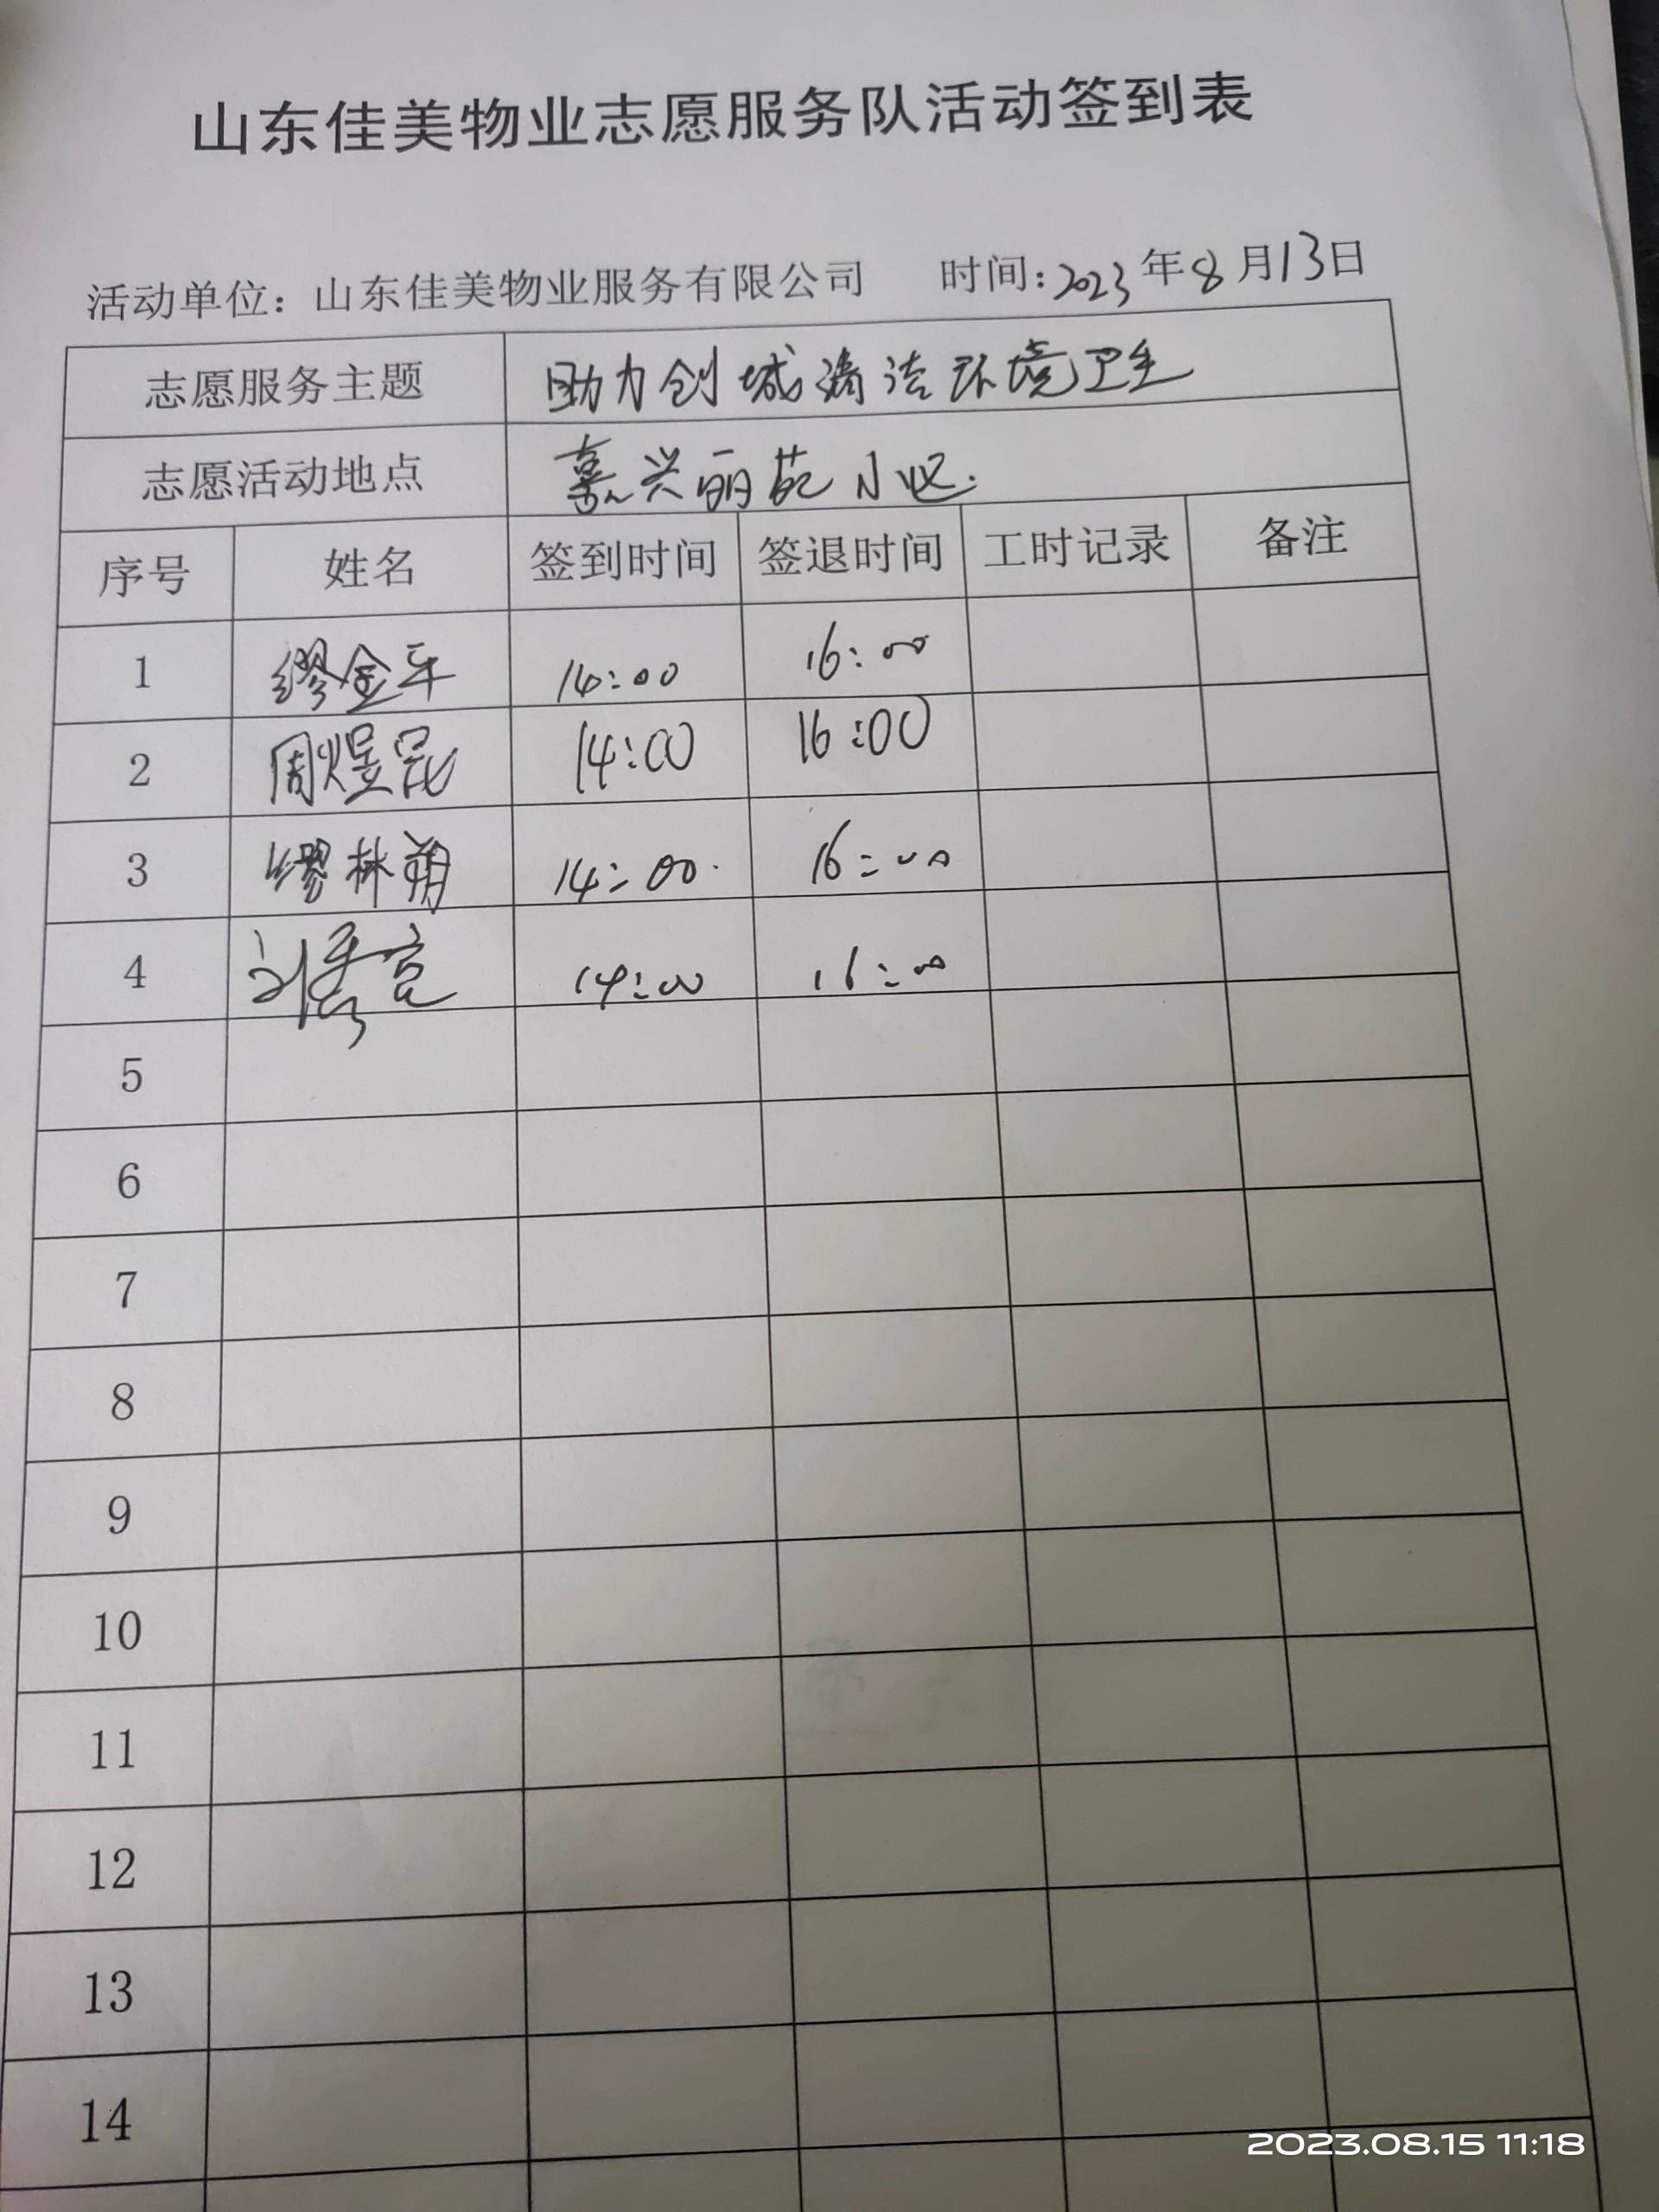 山东佳美物业志愿服务队活动签到表
活动单位：山东佳美物业服务有限公司 时间：2023年8月13日
志愿服务主题 助力创城清洁环境卫生
志愿活动地点 嘉兴丽苑小区.
序号 姓名 签到时间 签退时间 工时记录 备注
1 缪金平 14:00 16:00
2 周煜昆 14:00 16:00
3 缪林朔 14:00 16:00
4 14:00 16:00
5
6
7
8
9
10
11
12
13
14
2023.08.15 11:18